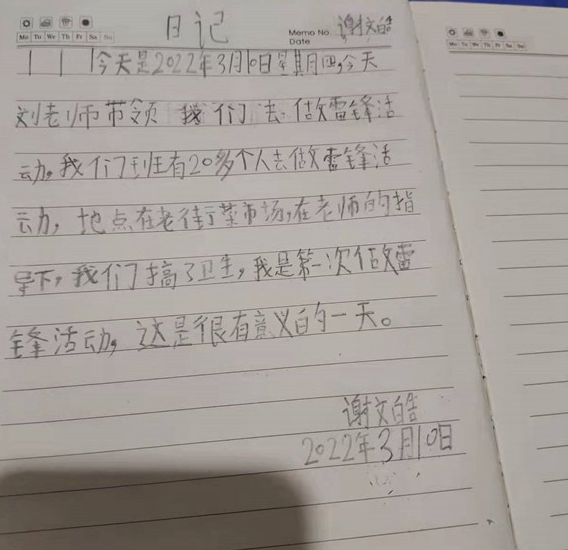 日记
Memo No. 谢文皓
Date
Mo Tu We Th Fr Sa Su
Mo Tu We Th Fr Sa Su
今天是2022年3月10日星期四,今天
刘老师带领 我们去做雷锋活
动,我们班有20多个人去做雷锋活
动,地点在老街菜市场,在老师的指
导下,我们搞了卫生,我是第一次做雷
锋活动,这是很有意义的一天。
谢文皓
2022年3月10日